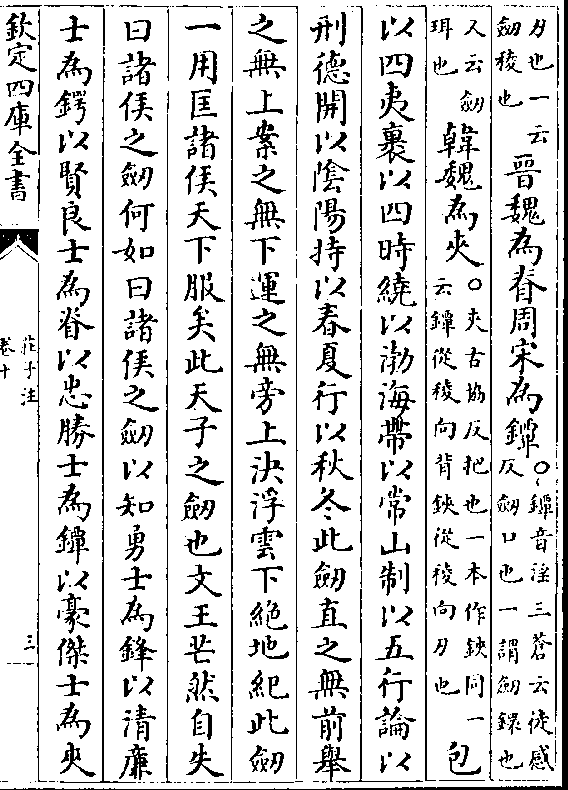 刃也一云
劒稜也
晉魏為脊周宋為鐔
○鐔音淫三蒼云徒感
反劒口也一謂劒鐶也
又云劒
珥也
韓魏為夾
○夾古協反把也一本作鋏同一
云鐔從稜向背鋏從稜向刃也
包
以四夷裹以四時繞以渤海帶以常山制以五行論以
刑德開以陰陽持以春夏行以秋冬此劒直之無前舉
之無上案之無下運之無旁上決浮雲下絶地紀此劒
一用匡諸侯天下服矣此天子之劒也文王芒然自失
曰諸侯之劒何如曰諸侯之劒以知勇士為鋒以清廉
士為鍔以賢良士為脊以忠勝士為鐔以豪傑士為夾
欽定四庫全書
莊子注
卷十
三